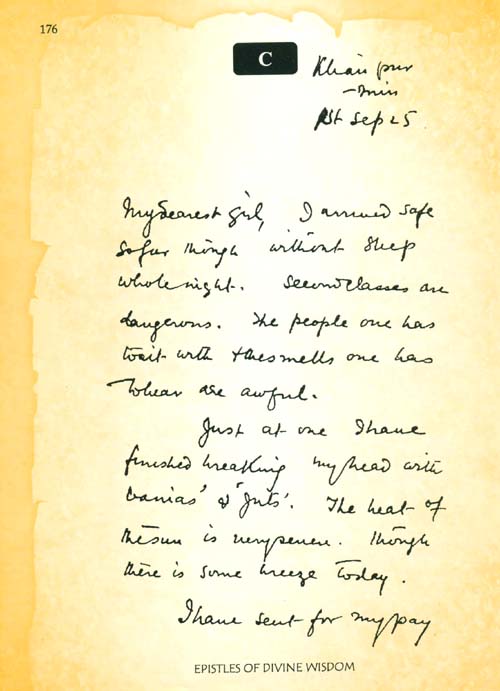 176
C
Khairpur
-Mirs
1st Sep 25
My dearest girl, I arrived safe
so far though without sleep
whole night. Second classes are
dangerous. The people one has
to sit with & the smells one has
to bear are awful.
Just at one I have
finished breaking my head with
banias' & 'Juts'. The heat of
the sun is very severe. Though
there is some breeze today.
I have sent for my pay
EPISTLES OF DIVINE WISDOM